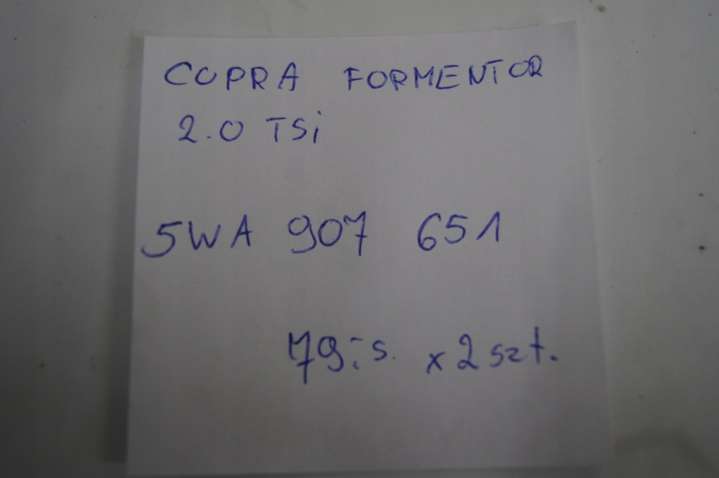 CUPRA FORMENTOR
2.0 TSi
5WA 907 651
79,-s. x 2 szt.